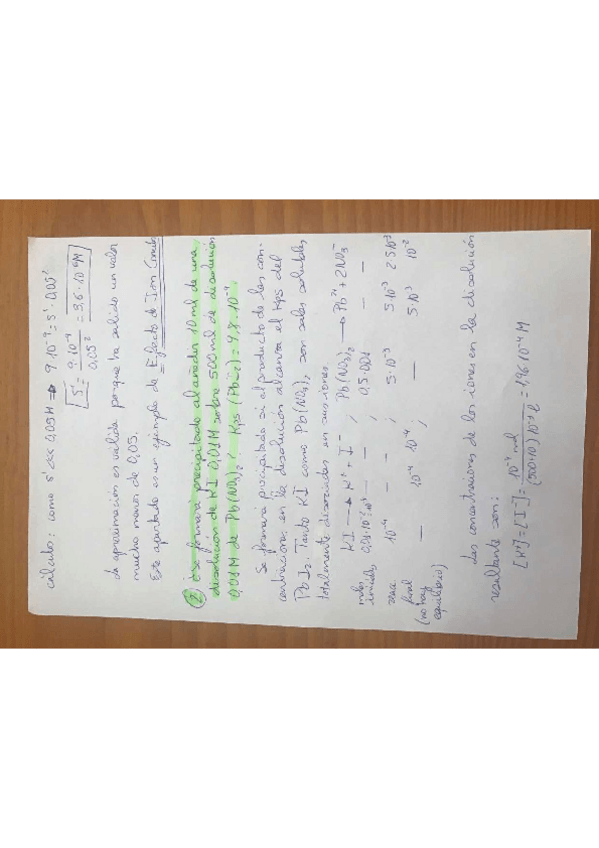 cálculo: como s' <<< 0,05 M → 9·10⁻⁹ = s'·0,05²
s' = 9·10⁻⁹ / 0,05² = 3,6·10⁻⁶ M
La aproximación es válida porque ha salido un valor
mucho menor de 0,05.
Este apartado es un ejemplo de Efecto de Ion Común
② ¿se formará precipitado al añadir 10 ml de una
disolución de KI 0,01M sobre 500 ml de disolución
0,01M de Pb(NO₃)₂? Kps (PbI₂) =
Se formará precipitado si el producto de las con-
centraciones en la disolución alcanza el Kps del
PbI₂. Tanto KI como Pb(NO₃)₂ son sales solubles
totalmente disociadas en sus iones.
KI → K⁺ + I⁻ Pb(NO₃)₂ → Pb²⁺ + 2NO₃⁻
moles iniciales 0,01·10⁻²·10⁻ — — ; 0,5·0,01 — —
reacc 10⁻⁴ — — ; 5·10⁻³ 5·10⁻³ 2·5·10⁻³
final (no hay equilibrio) — 10⁻⁴ 10⁻⁴ ; — 5·10⁻³ 10⁻²
Las concentraciones de los iones en la disolución
resultante son:
[K⁺] = [I⁻] = 10⁻⁴ mol / (500+10)·10⁻³ l = 1,96·10⁻⁴ M